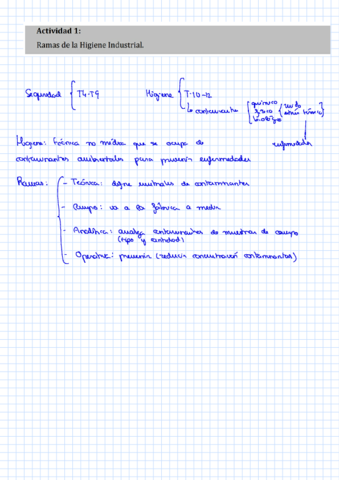 Actividad 1:
Ramas de la Higiene Industrial.
Seguridad { T4-T9 Higiene { T-10-12
↳ contaminante { químico físico { ruido estrés térmico } biológico
Higiene: técnica no médica que se ocupa de enfermedades
contaminantes ambientales para prevenir enfermedades
Ramas: - Teórica: define umbrales de contaminantes
- Campo: va a la fábrica a medir
- Analítica: analiza contaminantes de muestras de campo
(tipo y cantidad)
- Operativa: prevenir (reducir concentración contaminantes)